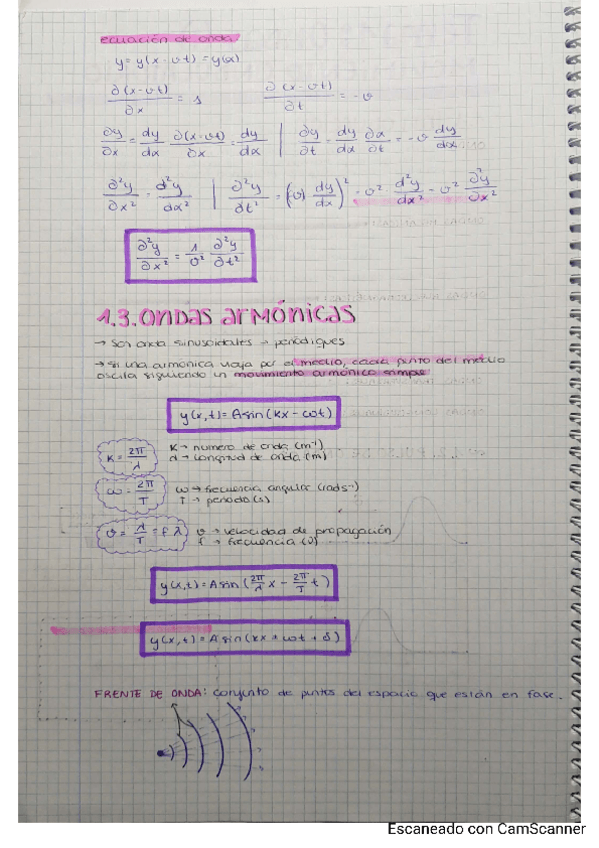 ecuación de onda
y = y(x - vt) = y(α)
∂(x-vt)/∂x = 1    ∂(x-vt)/∂t = -v
∂y/∂x = dy/dα ∂(x-vt)/∂x = dy/dα | ∂y/∂t = dy/dα ∂α/∂t = -v dy/dα
∂²y/∂x² = d²y/dα² | ∂²y/∂t² = (-v) (dy/dα)² = v² d²y/dα² = v² ∂²y/∂x²
∂²y/∂x² = 1/v² ∂²y/∂t²
1.3. ONDAS ARMÓNICAS
→ Son onda sinusoidales → periòdiques
→ Si una armónica viaja por el medio, cada punto del medio
oscila siguiendo un movimiento armónico simple
y(x,t) = A sin (kx - ωt)
K = 2π/λ    K → numero de onda (m⁻¹)
λ → longitud de onda (m)
ω = 2π/T    ω → frecuencia angular (rads⁻¹)
T → periodo (s)
v = λ/T = f λ    v → velocidad de propagación
f → frecuencia
y(x,t) = A sin (2π/λ x - 2π/T t)
y(x,t) = A sin (kx ± ωt + δ)
FRENTE DE ONDA: conjunto de puntos del espacio que están en fase.
Escaneado con CamScanner